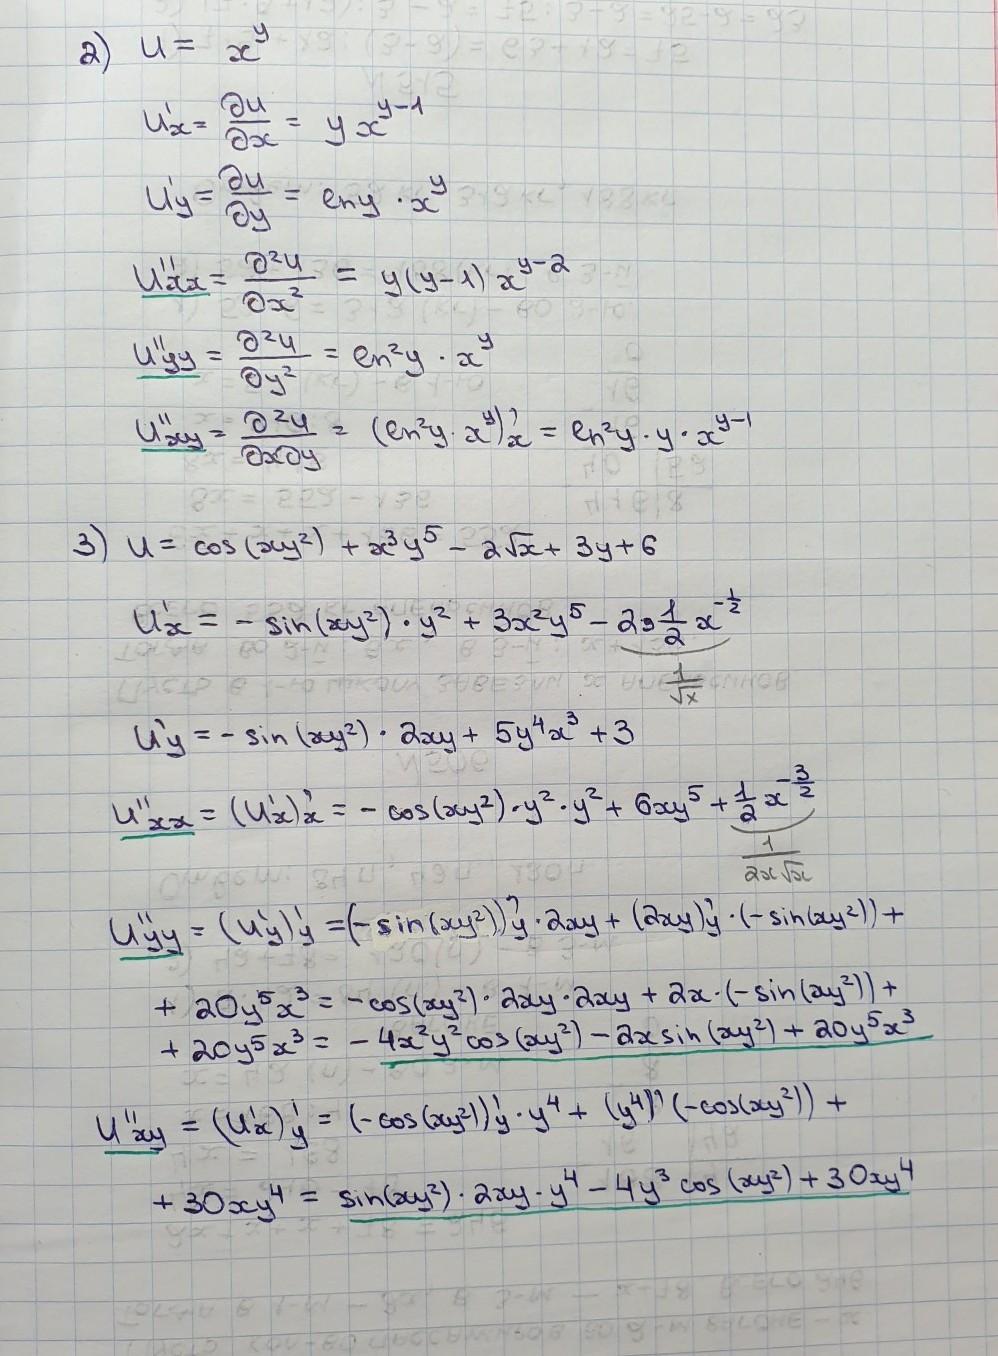 2) u = x^y
u'x = ∂u/∂x = y x^(y-1)
u'y = ∂u/∂y = lny · x^y
u''xx = ∂²u/∂x² = y(y-1) x^(y-2)
u''yy = ∂²u/∂y² = ln²y · x^y
u''xy = ∂²u/∂x∂y = (ln²y · x^y)'x = ln²y · y · x^(y-1)
3) u = cos(xy²) + x³y⁵ - 2√x + 3y + 6
u'x = - sin(xy²) · y² + 3x²y⁵ - 2 · 1/2 x^(-1/2)
1/√x
u'y = - sin(xy²) · 2xy + 5y⁴x³ + 3
u''xx = (u'x)'x = - cos(xy²) · y² · y² + 6xy⁵ + 1/2 x^(-3/2)
1/(2x√x)
u''yy = (u'y)'y = (- sin(xy²))'y · 2xy + (2xy)'y · (- sin(xy²)) +
+ 20y⁵x³ = - cos(xy²) · 2xy · 2xy + 2x · (- sin(xy²)) +
+ 20y⁵x³ = - 4x²y² cos(xy²) - 2x sin(xy²) + 20y⁵x³
u''xy = (u'x)'y = (- cos(xy²))'y · y⁴ + (y⁴)' (- cos(xy²)) +
+ 30xy⁴ = sin(xy²) · 2xy · y⁴ - 4y³ cos(xy²) + 30xy⁴